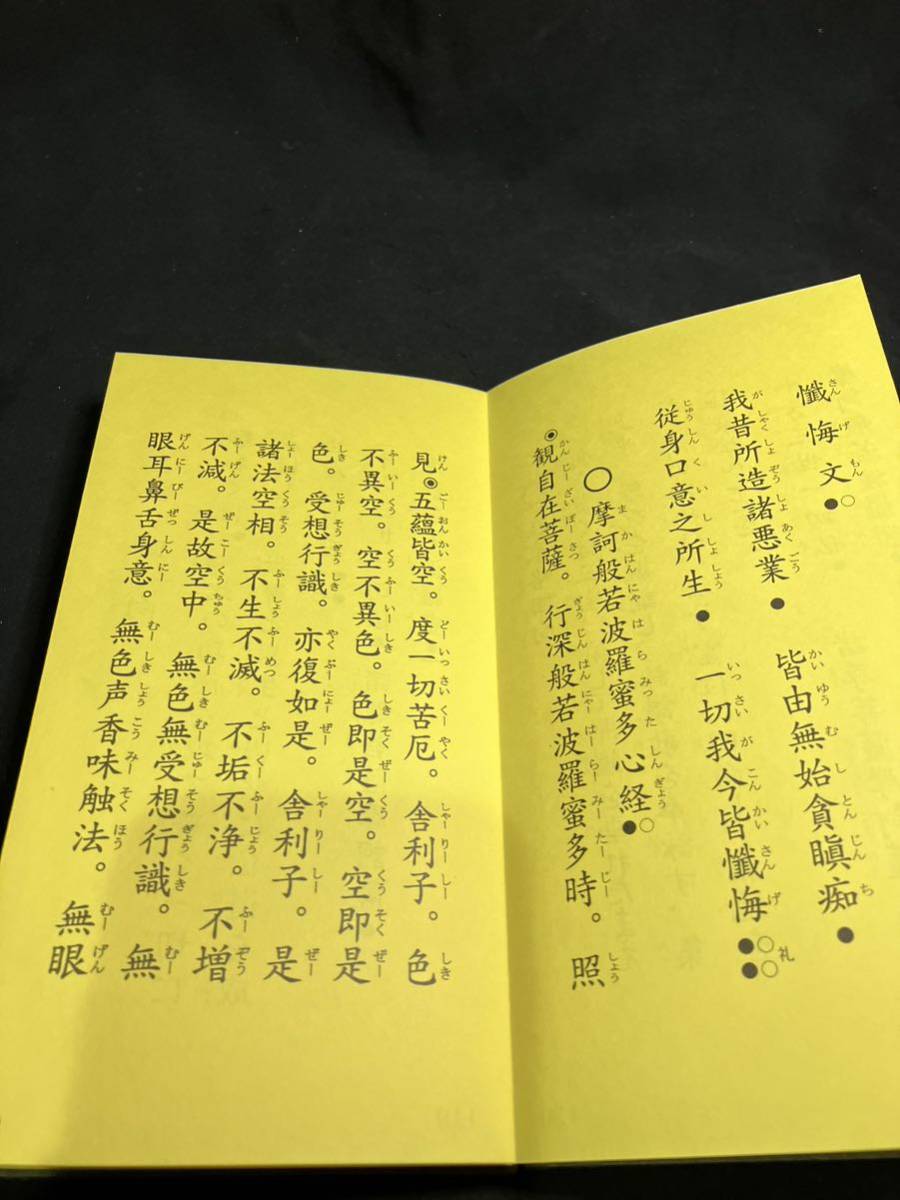 懺悔文●○
我昔所造諸悪業● 皆由無始貪瞋痴●
従身口意之所生● 一切我今皆懺悔●○●○礼
○摩訶般若波羅蜜多心経●○
◉観自在菩薩。行深般若波羅蜜多時。照
見◉五蘊皆空。度一切苦厄。舎利子。色
不異空。空不異色。色即是空。空即是
色。受想行識。亦復如是。舎利子。是
諸法空相。不生不滅。不垢不浄。不増
不減。是故空中。無色無受想行識。無
眼耳鼻舌身意。無色声香味触法。無眼